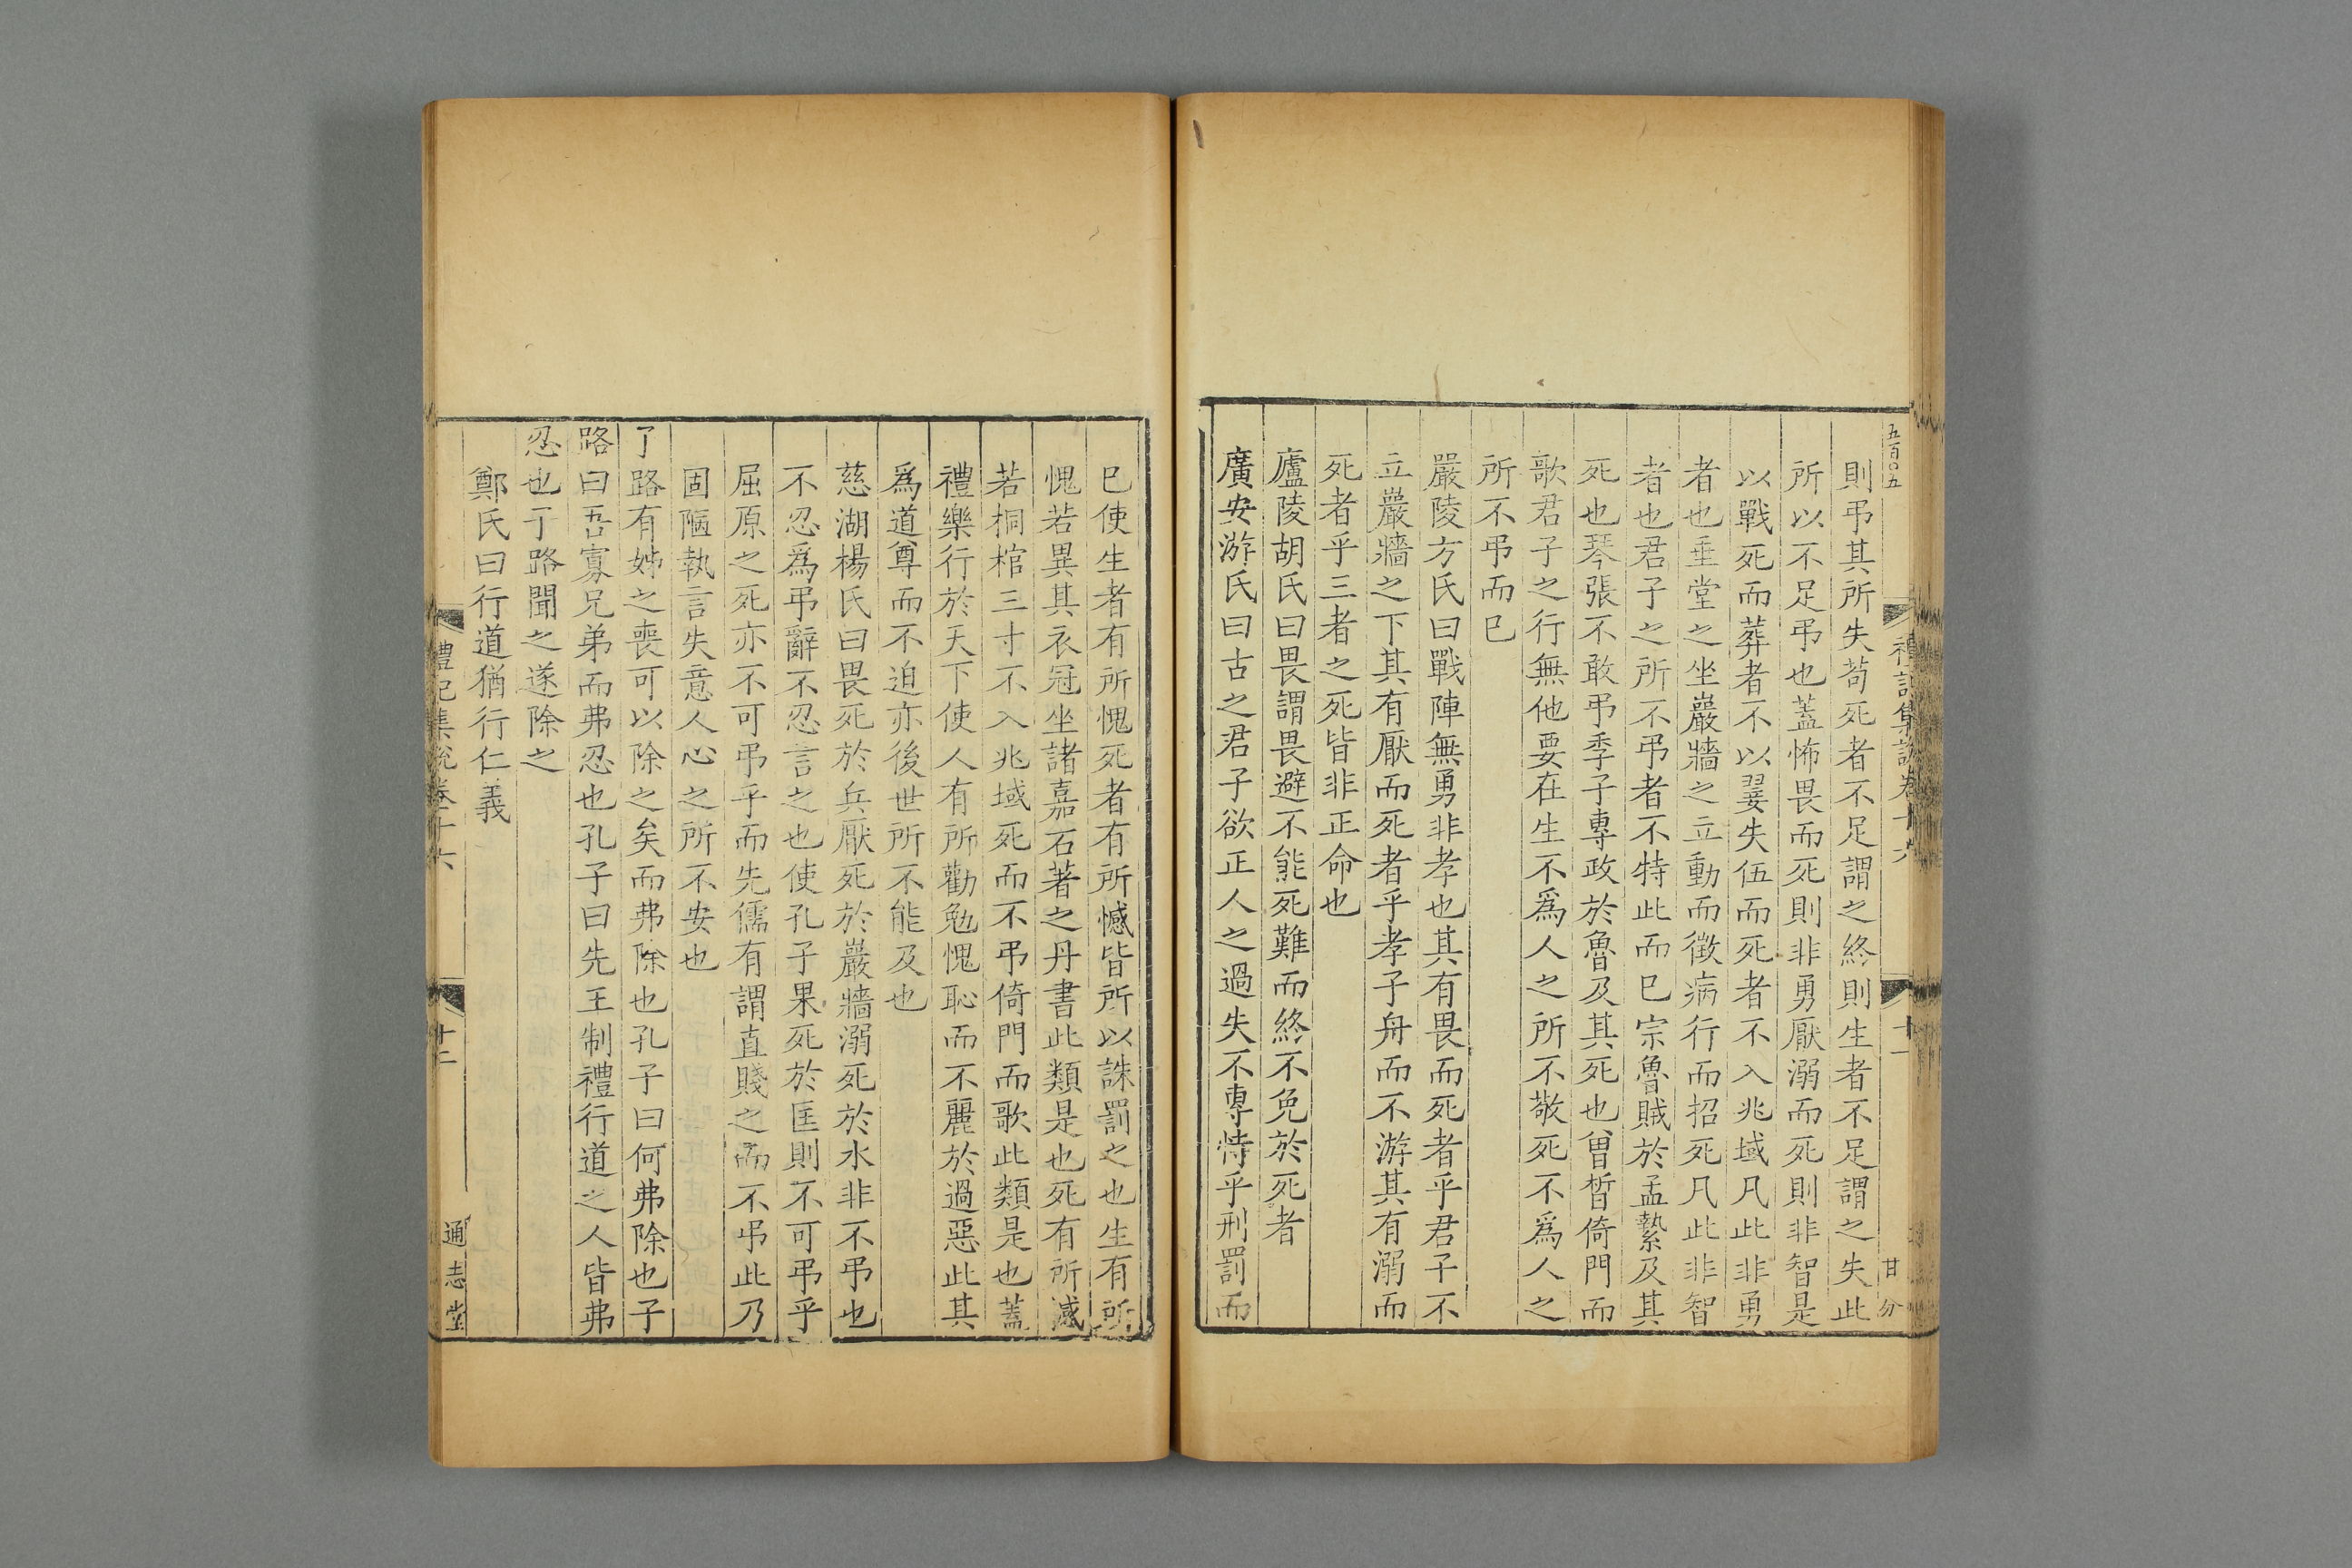 五百〇五
禮記集說卷十六
十一
甘
分
則弔其所失苟死者不足謂之終則生者不足謂之失此
所以不足弔也蓋怖畏而死則非勇厭溺而死則非智是
以戰死而葬者不以翣失伍而死者不入兆域凡此非勇
者也垂堂之坐巖牆之立動而徵病行而招死凡此非智
者也君子之所不弔者不特此而已宗魯賊於孟縶及其
死也琴張不敢弔季子專政於魯及其死也曾皙倚門而
歌君子之行無他要在生不爲人之所不敬死不爲人之
所不弔而已
嚴陵方氏曰戰陣無勇非孝也其有畏而死者乎君子不
立巖牆之下其有厭而死者乎孝子舟而不游其有溺而
死者乎三者之死皆非正命也
廬陵胡氏曰畏謂畏避不能死難而終不免於死者
廣安游氏曰古之君子欲正人之過失不專恃乎刑罰而
已使生者有所愧死者有所憾皆所以誅罰之也生有所
愧若異其衣冠坐諸嘉石著之丹書此類是也死有所憾
若桐棺三寸不入兆域死而不弔倚門而歌此類是也蓋
禮樂行於天下使人有所勸勉愧恥而不麗於過惡此其
爲道尊而不迫亦後世所不能及也
慈湖楊氏曰畏死於兵厭死於巖牆溺死於水非不弔也
不忍爲弔辭不忍言之也使孔子果死於匡則不可弔乎
屈原之死亦不可弔乎而先儒有謂直賤之而不弔此乃
固陋執言失意人心之所不安也
子路有姊之喪可以除之矣而弗除也孔子曰何弗除也子
路曰吾寡兄弟而弗忍也孔子曰先王制禮行道之人皆弗
忍也子路聞之遂除之
鄭氏曰行道猶行仁義
禮記集說卷十六
十二
通志堂